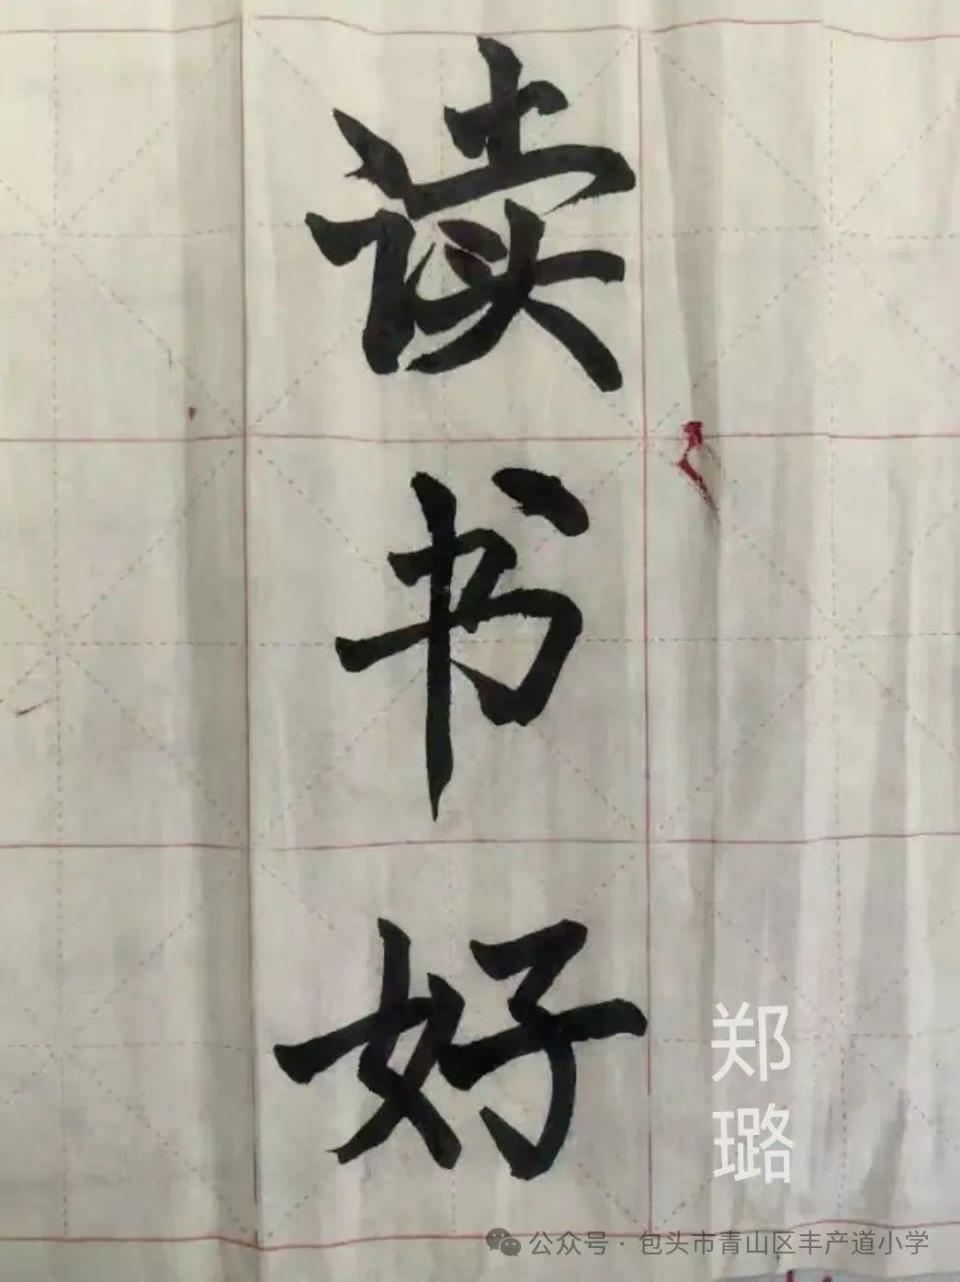 读书好
郑璐
公众号·包头市青山区丰产道小学